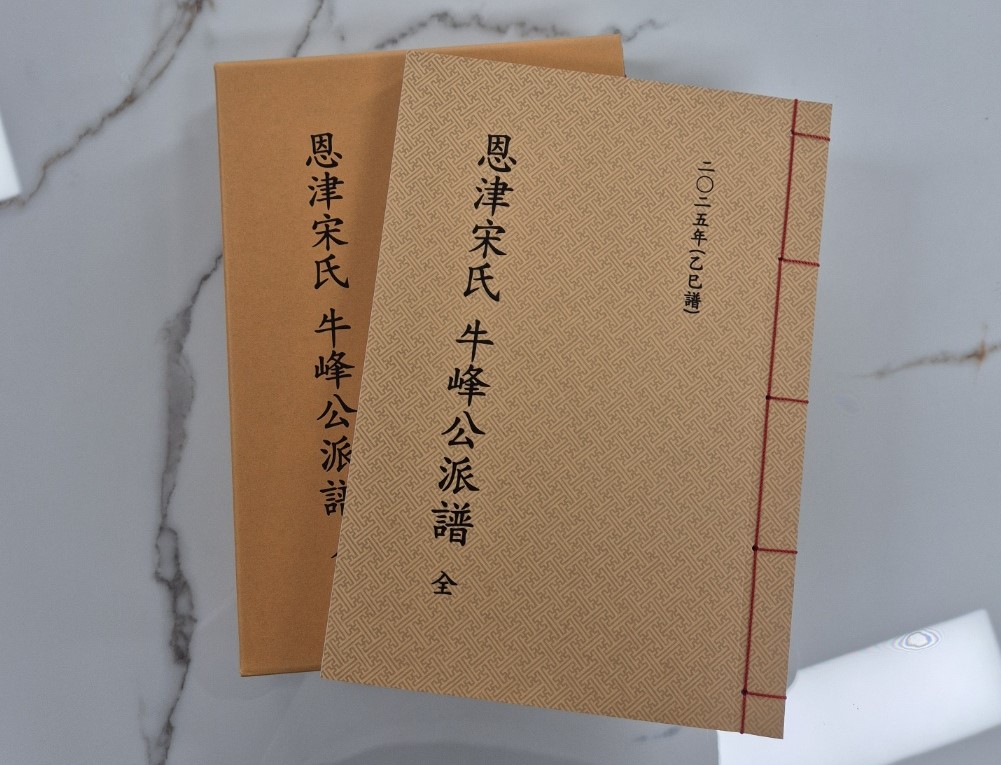 二〇二五年(乙巳譜)
恩津宋氏 牛峰公派譜 全
恩津宋氏 牛峰公派譜